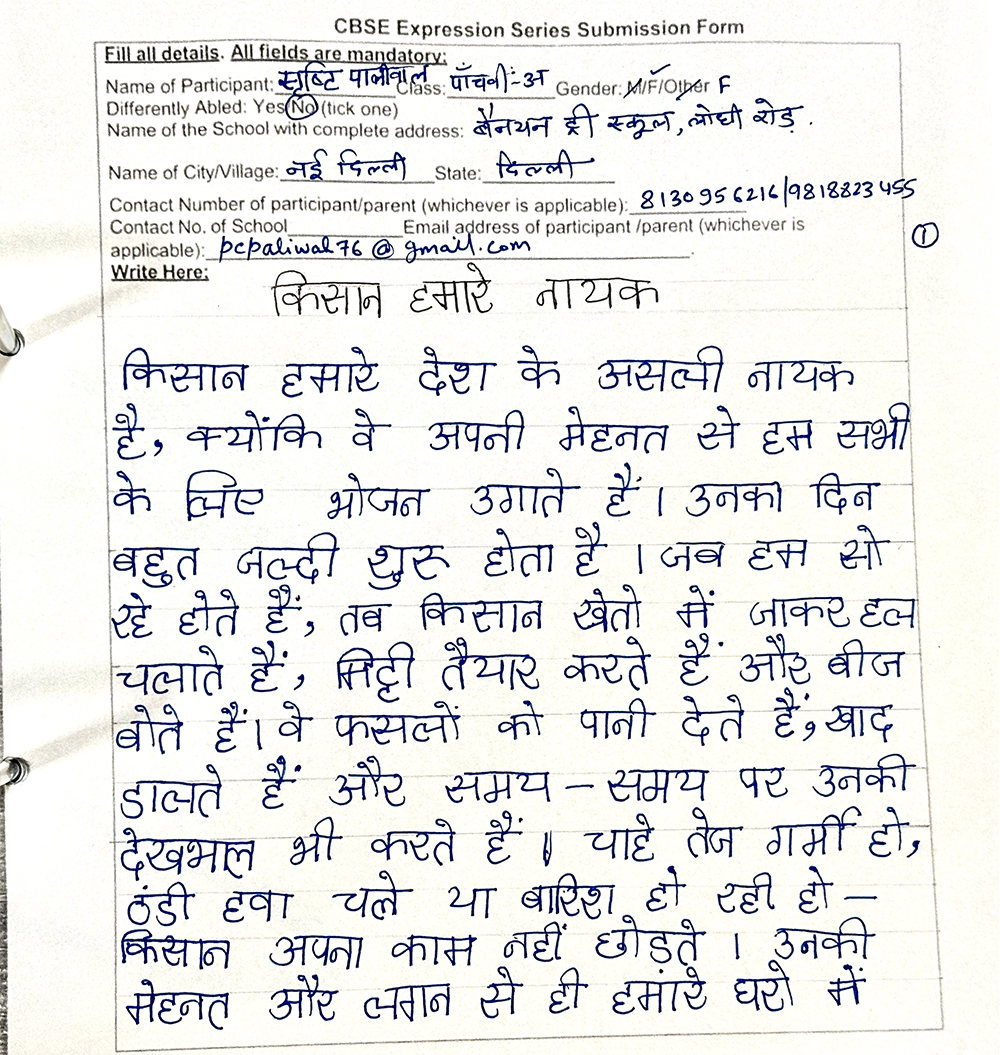 CBSE Expression Series Submission Form
Fill all details. All fields are mandatory:
Name of Participant: सृष्टि पालीवाल Class: पाँचवी-अ Gender: M/F/Other F
Differently Abled: Yes/No (tick one)
Name of the School with complete address: बैनयन ट्री स्कूल, लोधी रोड़.
Name of City/Village: नई दिल्ली State: दिल्ली
Contact Number of participant/parent (whichever is applicable): 8130956216/9818823455
Contact No. of School____________Email address of participant /parent (whichever is
applicable): pcpaliwal76@gmail.com
1
Write Here:
किसान हमारे नायक
किसान हमारे देश के असली नायक
है, क्योंकि वे अपनी मेहनत से हम सभी
के लिए भोजन उगाते हैं। उनका दिन
बहुत जल्दी शुरू होता है। जब हम सो
रहे होते हैं, तब किसान खेतो में जाकर हल
चलाते हैं, मिट्टी तैयार करते हैं और बीज
बोते हैं। वे फसलों को पानी देते हैं, खाद
डालते हैं और समय – समय पर उनकी
देखभाल भी करते हैं। चाहे तेज गर्मी हो,
ठंडी हवा चले या बारिश हो रही हो –
किसान अपना काम नहीं छोड़ते । उनकी
मेहनत और लगन से ही हमारे घरो में